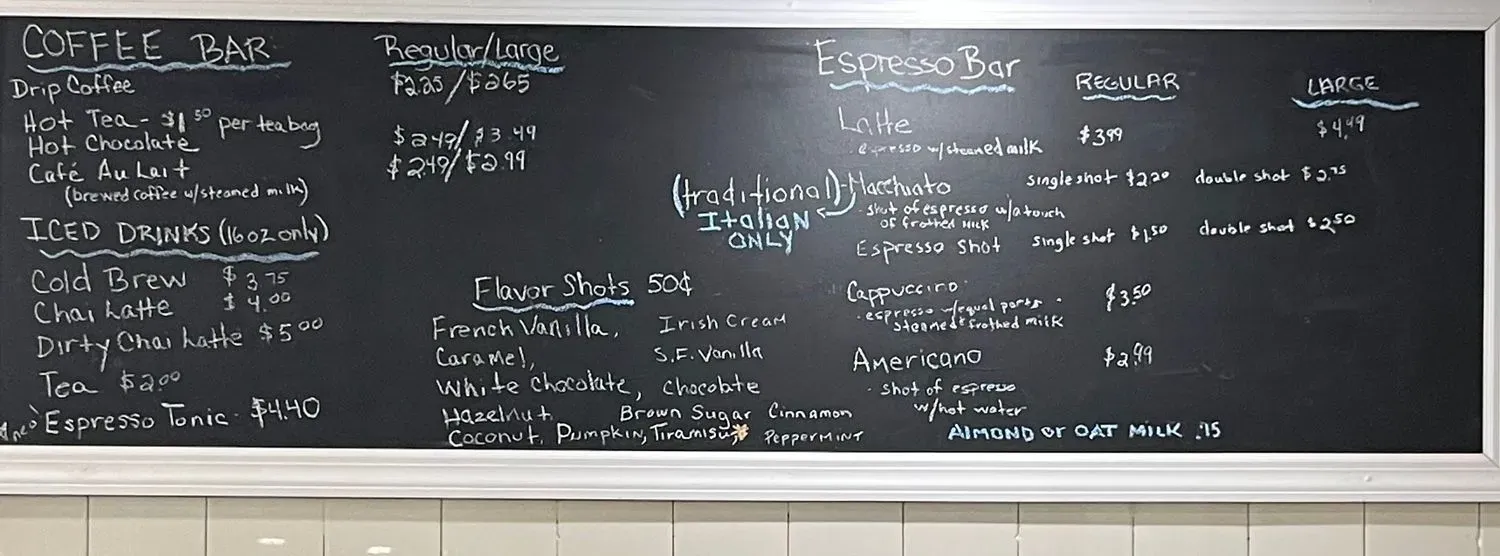 COFFEE BAR
Regular/Large
Drip Coffee $2.25/$2.65
Hot Tea - $1.50 per teabag
Hot Chocolate $2.49/$3.49
Café Au Lait $2.49/$2.99
(brewed coffee w/steamed milk)
ICED DRINKS (16oz only)
Cold Brew $3.75
Chai Latte $4.00
Dirty Chai Latte $5.00
Tea $2.00
Espresso Tonic - $4.40
Flavor Shots 50¢
French Vanilla, Irish Cream
Caramel, S.F. Vanilla
White Chocolate, Chocolate
Hazelnut Brown Sugar Cinnamon
Coconut, Pumpkin, Tiramisu, PEPPERMINT
Espresso Bar
REGULAR LARGE
Latte $3.99 $4.49
espresso w/steamed milk
(traditional)-Macchiato single shot $2.20 double shot $2.75
ITalian
ONLY
- shot of espresso w/a touch
of frothed milk
Espresso Shot single shot $1.50 double shot $2.50
Cappuccino $3.50
- espresso w/equal parts
steamed & frothed milk
Americano $2.99
- shot of espresso
w/hot water
ALMOND or OAT MILK .75